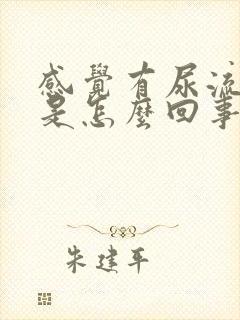 感覺有尿流
是怎麼回事
朱建平